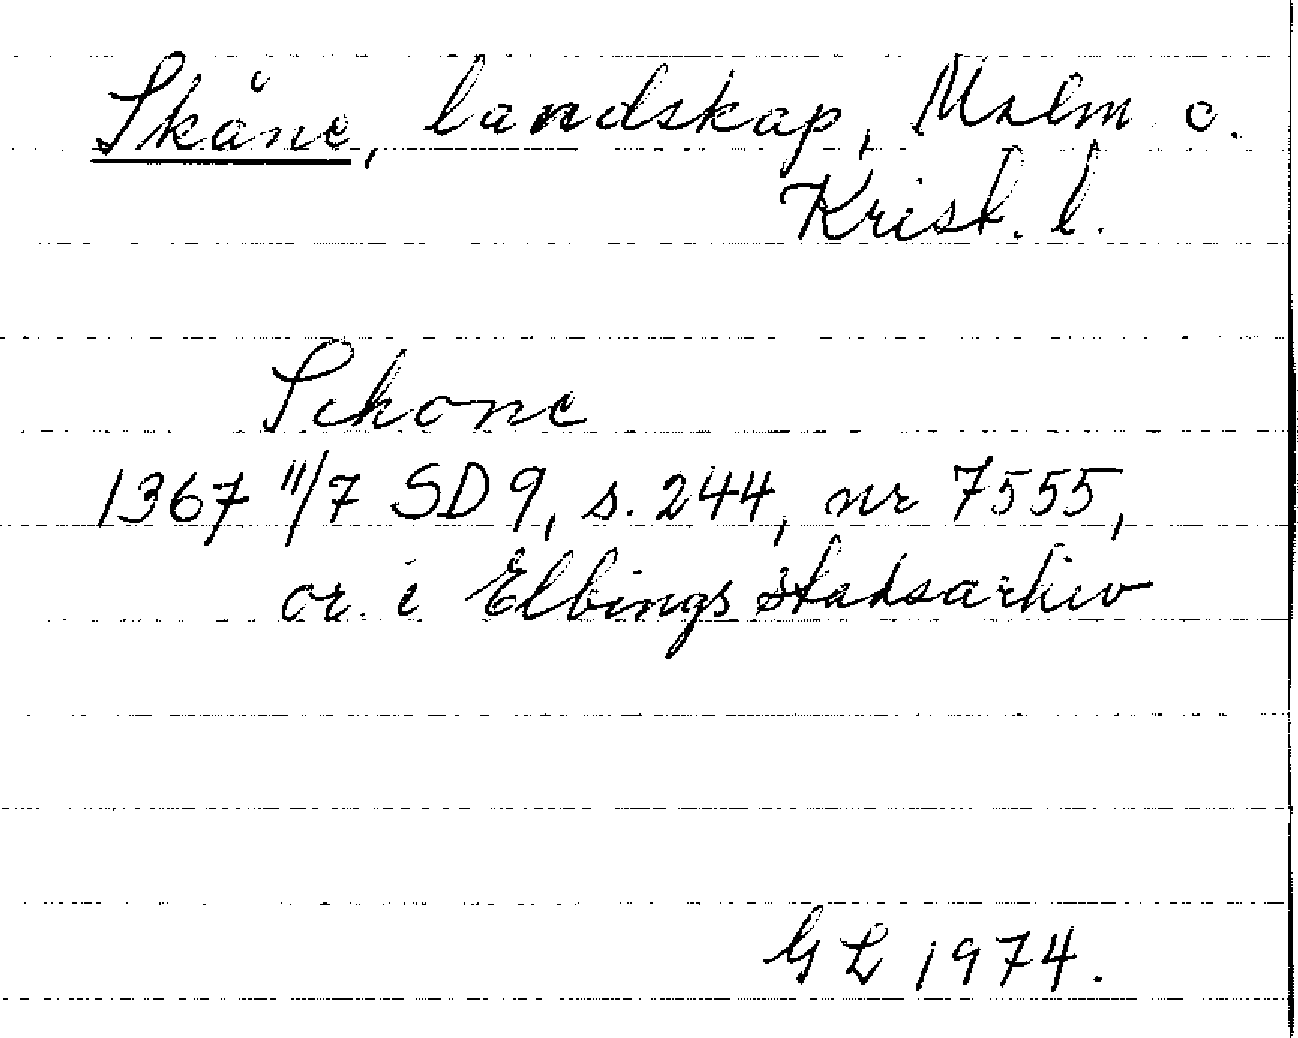 Skåne, landskap, Malm o.
Krist. l.
Schone
1367 11/7 SD 9, s. 244, nr 7555,
or. i Elbings stadsarkiv
GL 1974.